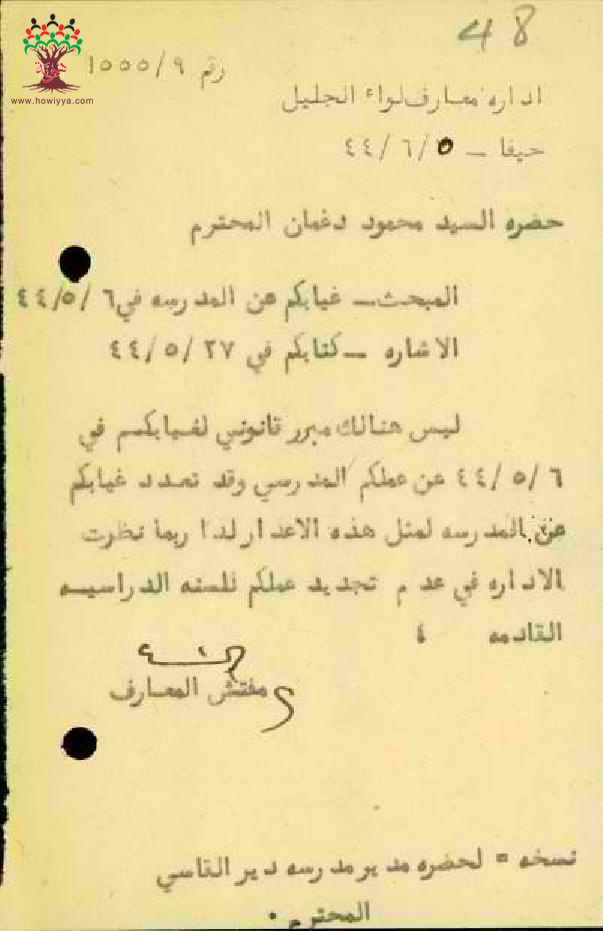 48
www.howiyya.com
رقم ١٥٥٥/٩
اداره معارف لواء الجليل
حيفا – ٤٤/٦/٥
حضره السيد محمود دغمان المحترم
المبحث – غيابكم عن المدرسه في ٤٤/٥/٦
الاشاره – كتابكم في ٤٤/٥/٢٧
ليس هنالك مبرر قانوني لغيابكم في
٤٤/٥/٦ عن عملكم المدرسي وقد تعدد غيابكم
عن المدرسه لمثل هذه الاعذار لذا ربما نظرت
الاداره في عدم تجديد عملكم للسنه الدراسيه
القادمه
مفتش المعارف
نسخه = لحضره مدير مدرسه دير القاسي
المحترم .